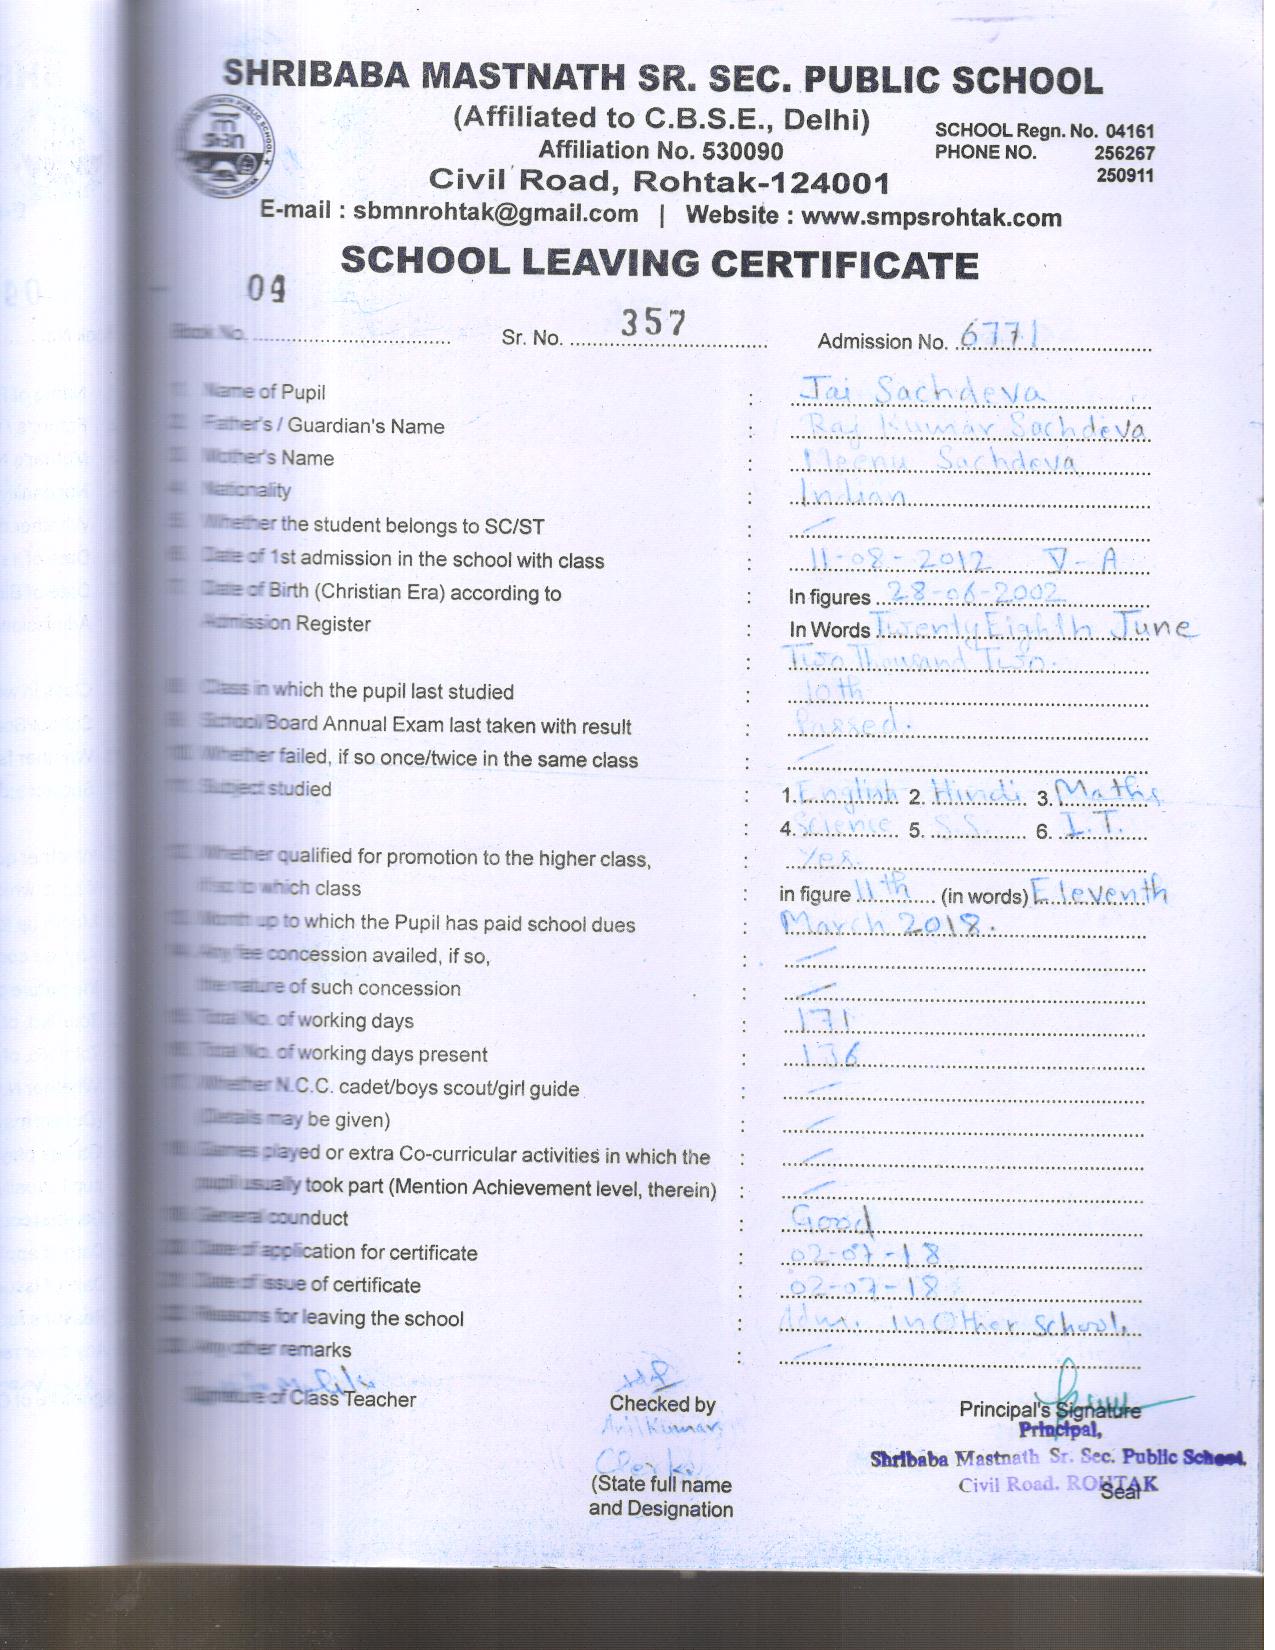 SHRIBABA MASTNATH SR. SEC. PUBLIC SCHOOL
(Affiliated to C.B.S.E., Delhi)
Affiliation No. 530090
SCHOOL Regn. No. 04161
PHONE NO. 256267
250911
Civil Road, Rohtak-124001
E-mail : sbmnrohtak@gmail.com | Website : www.smpsrohtak.com
SCHOOL LEAVING CERTIFICATE
Book No. 09 Sr. No. 357 Admission No. 6771
1. Name of Pupil : Jai Sachdeva
2. Father's / Guardian's Name : Raj Kumar Sachdeva
3. Mother's Name : Meenu Sachdeva
4. Nationality : Indian
5. Whether the student belongs to SC/ST : —
6. Date of 1st admission in the school with class : 11-08-2012 V-A
7. Date of Birth (Christian Era) according to : In figures 28-06-2002
Admission Register : In Words Twenty Eighth June
: Two Thousand Two.
8. Class in which the pupil last studied : 10th
9. School/Board Annual Exam last taken with result : Passed.
10. Whether failed, if so once/twice in the same class : —
11. Subject studied : 1. English 2. Hindi 3. Maths
: 4. Science 5. S.S. 6. I.T.
12. Whether qualified for promotion to the higher class, : Yes.
if so to which class : in figure 11th (in words) Eleventh
13. Month up to which the Pupil has paid school dues : March 2018.
14. Any fee concession availed, if so, : —
the nature of such concession : —
15. Total No. of working days : 171
16. Total No. of working days present : 136
17. Whether N.C.C. cadet/boys scout/girl guide : —
(Details may be given) : —
18. Games played or extra Co-curricular activities in which the : —
pupil usually took part (Mention Achievement level, therein) : —
19. General counduct : Good
20. Date of application for certificate : 02-07-18
21. Date of issue of certificate : 02-07-18
22. Reasons for leaving the school : Adm. in Other School.
23. Any other remarks : —
Signature of Class Teacher Checked by Principal's Signature
Anil Kumar Principal,
Clerk Shribaba Mastnath Sr. Sec. Public School,
(State full name Civil Road. ROHTAK
and Designation Seal